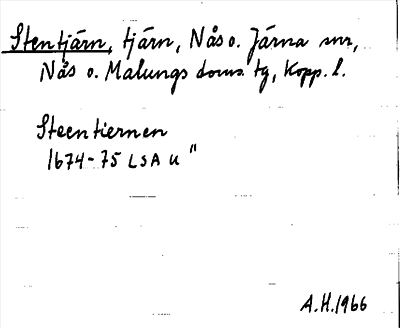 Stentjärn, tjärn, Nås o. Järna snr,
Nås o. Malungs doms. tg, Kopp. l.
Steentiernen
1674-75 LSA U"
A.H. 1966